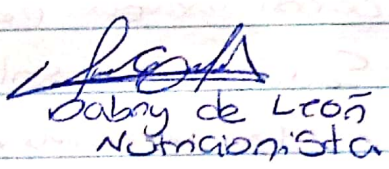 Dabny de León
Nutricionista